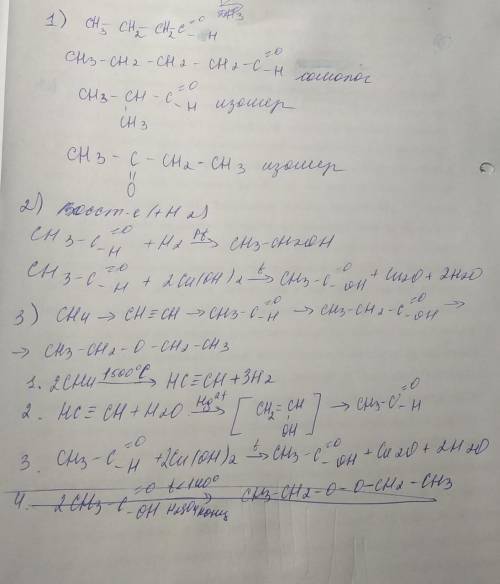 1) CH3 CH2 CH2C =O H
CH3-CH2-CH2-CH2-C =O H гомолог
CH3-CH-C =O H изомер
CH3
CH3-C-CH2-CH3 изомер
O
2) Восст-е (+H2)
CH3-C =O H +H2 → CH3-CH2OH
CH3-C =O H + 2Cu(OH)2 t→ CH3-C =O OH + Cu2O + 2H2O
3) CH4 → CH≡CH → CH3-C =O H → CH3-CH2-C =O OH →
→ CH3-CH2-O-CH2-CH3
1. 2CH4 1500°C→ HC≡CH+3H2
2. HC≡CH+H2O Hg2+→ [CH2=CH OH] → CH3-C =O H
3. CH3-C =O H +2Cu(OH)2 t→ CH3-C =O OH + Cu2O + 2H2O
4. 2CH3-C =O OH t<140° H2SO4конц → CH3-CH2-O-O-CH2-CH3